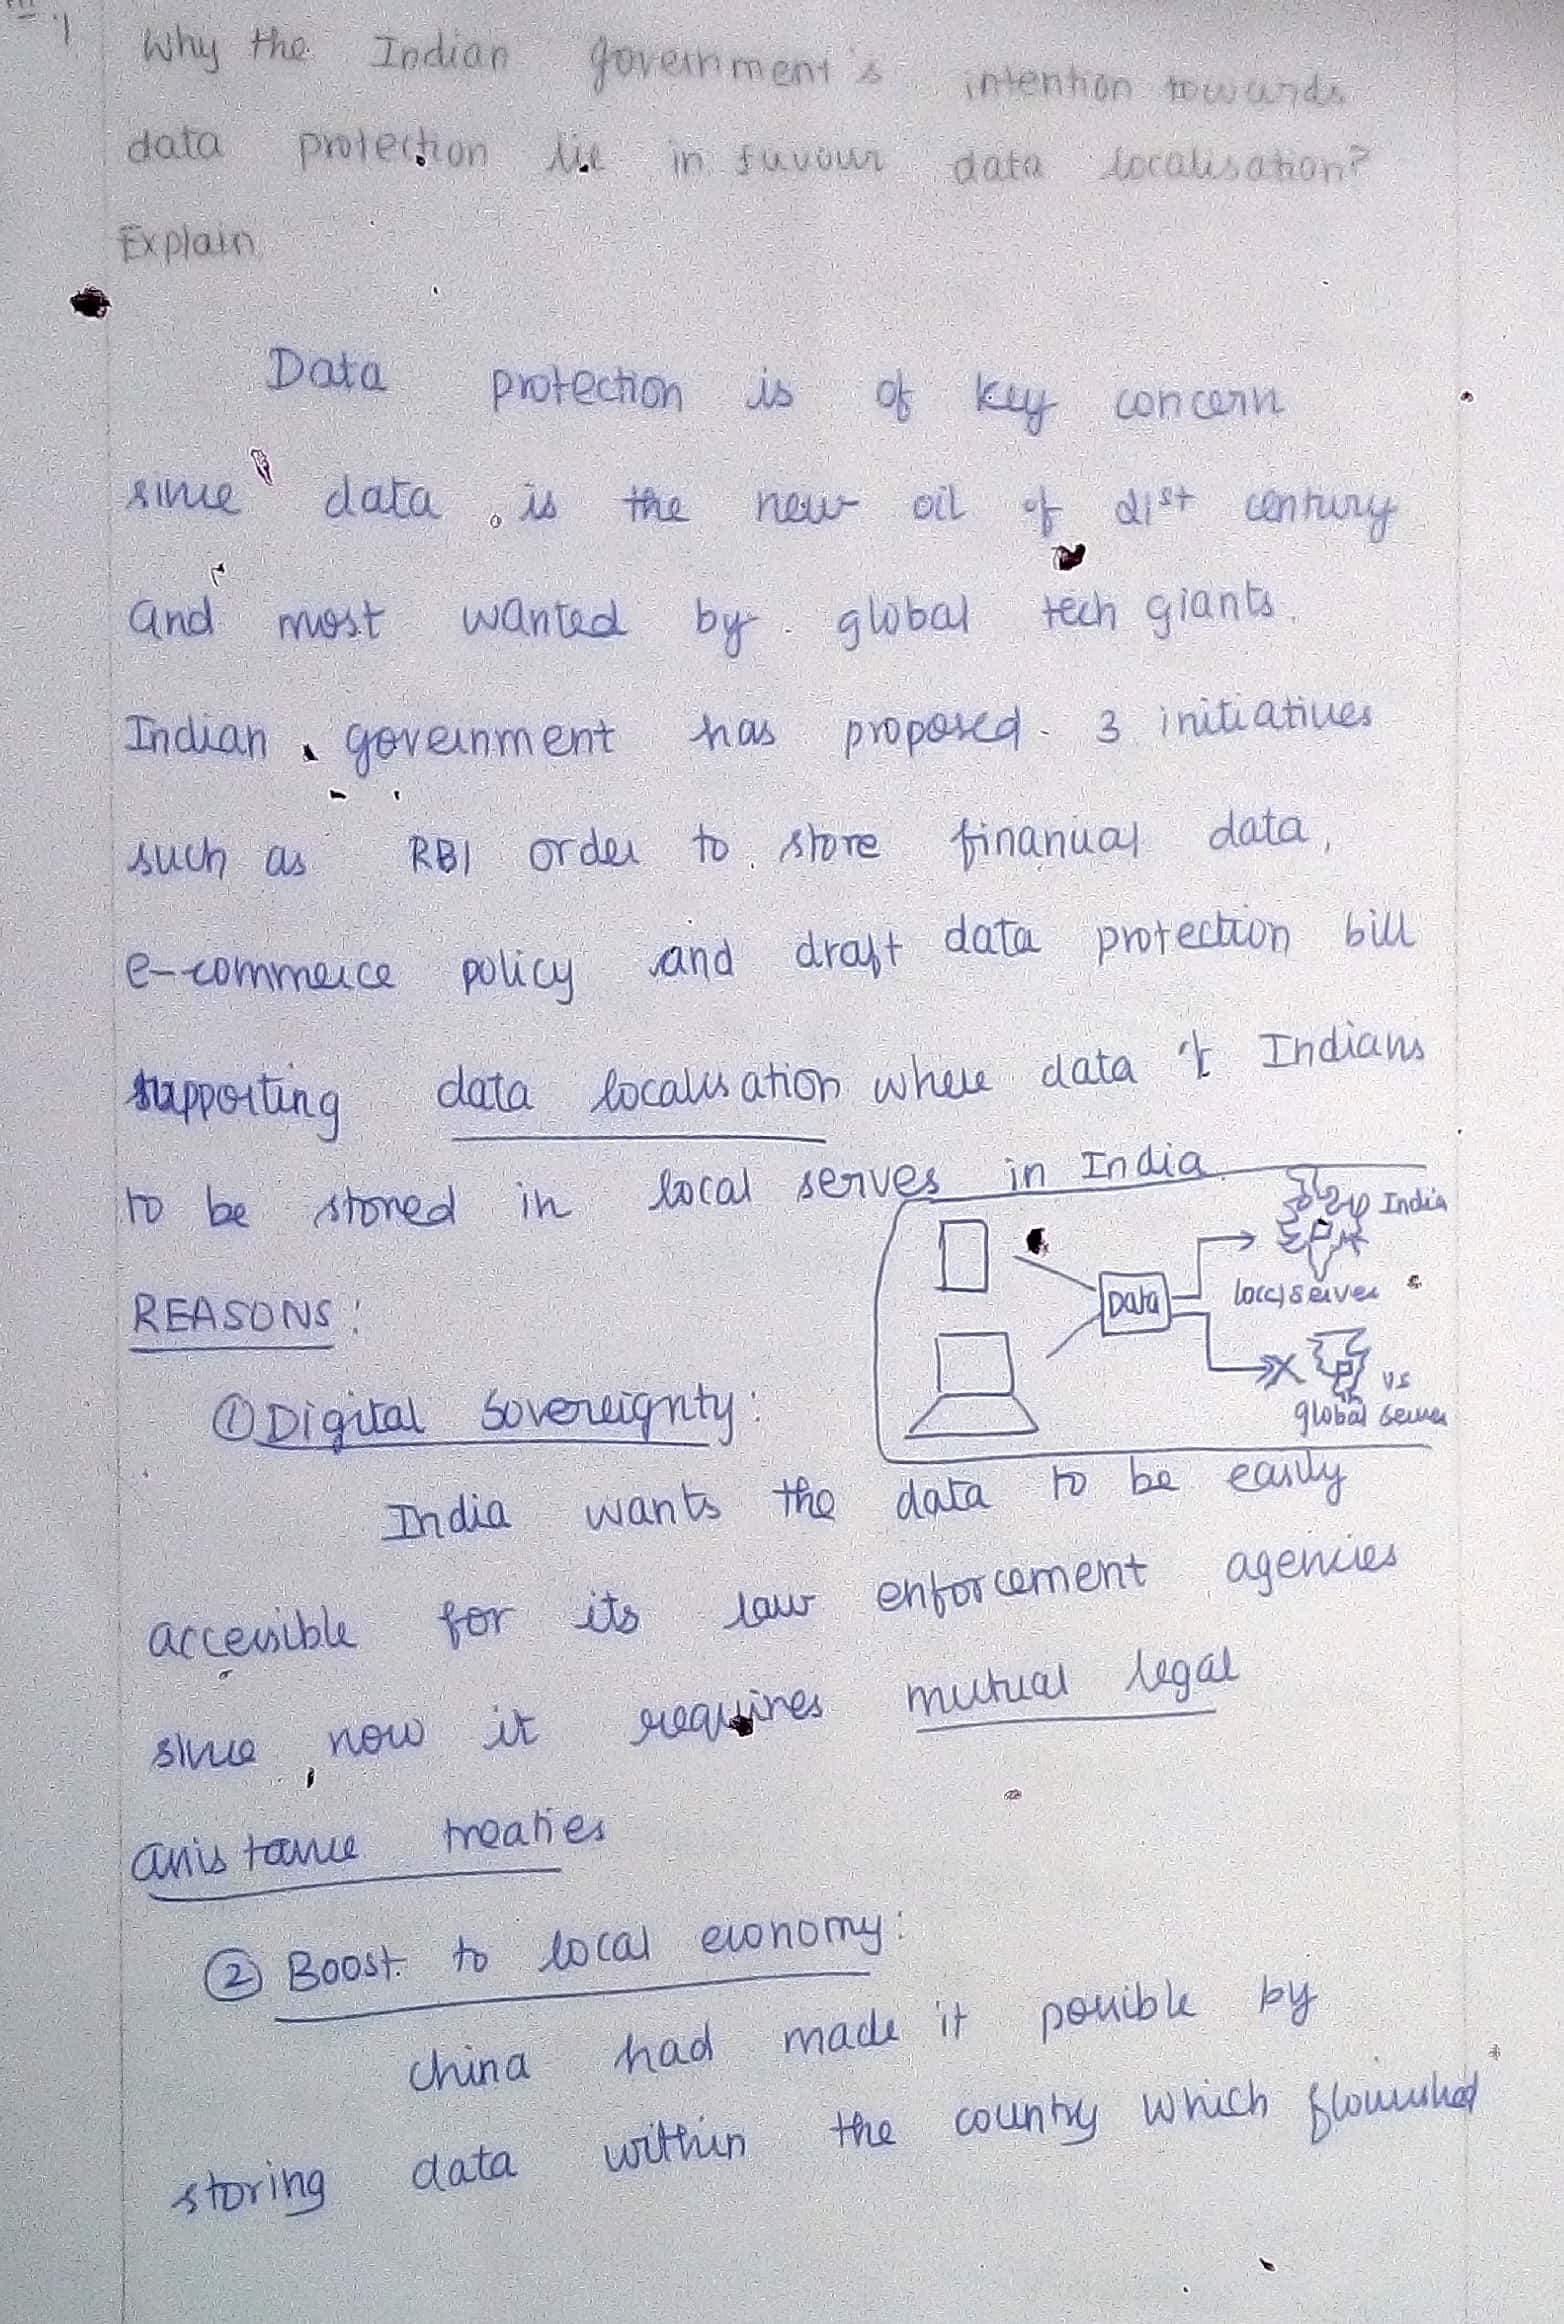 Why the Indian government's intention towards
data protection lie in favour data localisation?
Explain.
Data protection is of key concern
since data is the new oil of 21st century
and most wanted by global tech giants.
Indian government has proposed 3 initiatives
such as RBI order to store financial data,
e-commerce policy and draft data protection bill
supporting data localisation where data of Indians
to be stored in local serves in India
India
Data
local server
US
global server
REASONS:
① Digital Sovereignty:
India wants the data to be easily
accessible for its law enforcement agencies
since now it requires mutual legal
assistance treaties
② Boost to local economy:
China had made it possible by
storing data within the country which flourished